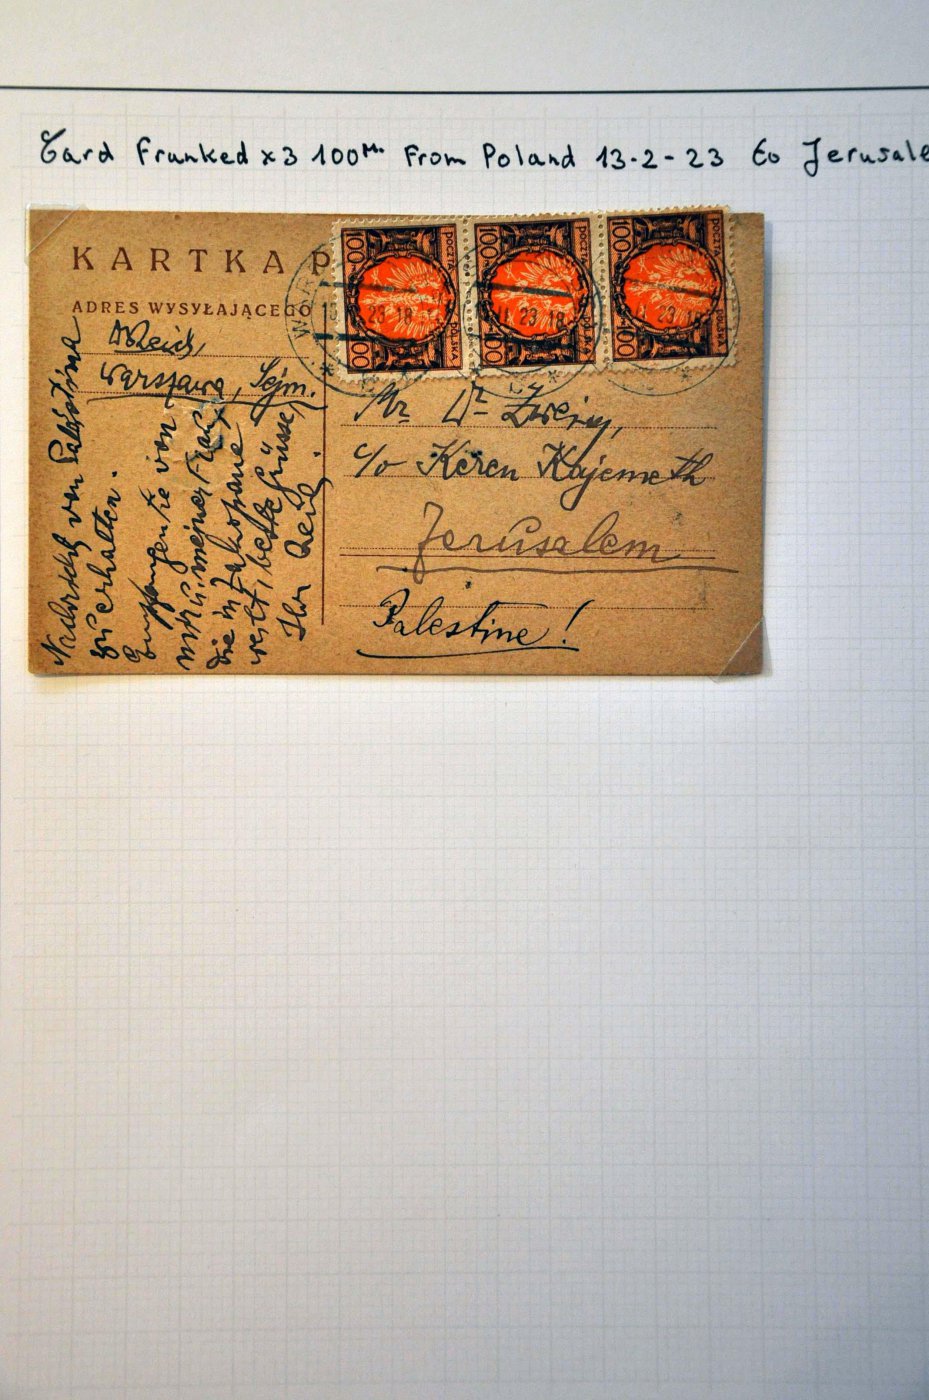 Card Franked x3 100M. From Poland 13-2-23 to Jerusale
KARTKA P
ADRES WYSYŁAJĄCEGO
Reich,
Warszawa, Sejm.
100 POCZTA POLSKA 100
100 POCZTA POLSKA 100
100 POCZTA POLSKA 100
23 18
II 23 18
23 18
Mr Dr
c/o Keren Kajemeth
Jerusalem
Palestine!
von Palästina
zu erhalten.
von
mir u. meiner Frau,
die in Zakopane
beste Grüsse,
Ihr Reich.